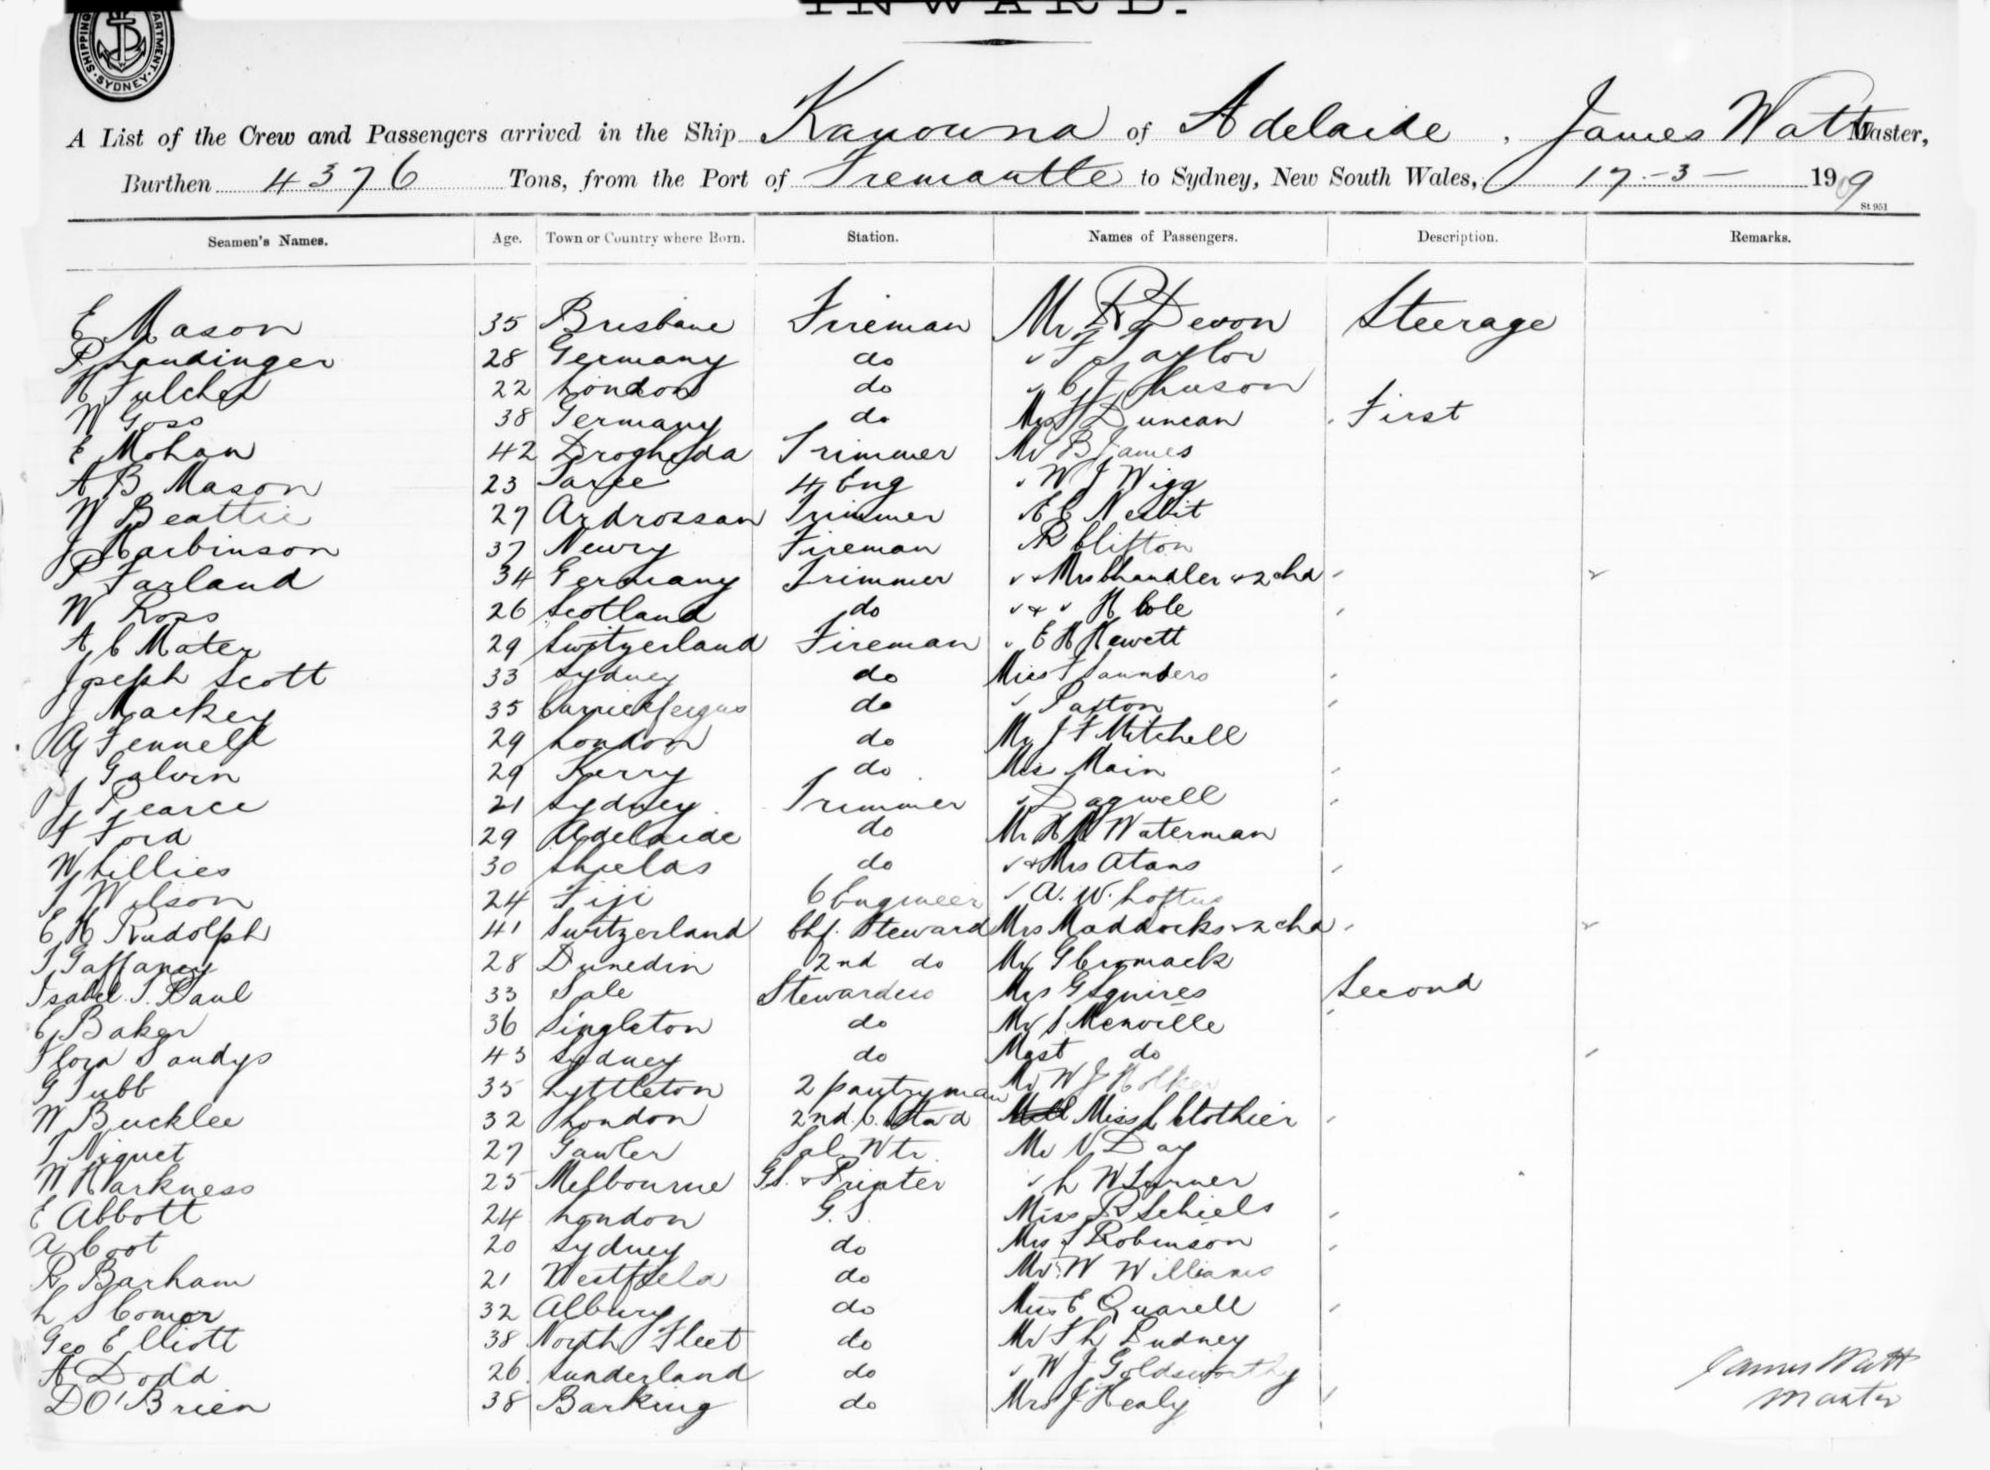 INWARD.
SHIPPING DEPARTMENT SYDNEY
A List of the Crew and Passengers arrived in the Ship Kanowna of Adelaide, James Watt Master,
Burthen 4376 Tons, from the Port of Fremantle to Sydney, New South Wales, 17-3-1909
St 951
Seamen's Names. Age. Town or Country where Born. Station. Names of Passengers. Description. Remarks.
E Mason 35 Brisbane Fireman Mr R Devon Steerage
P Landinger 28 Germany do " F Taylor
H Fulcher 22 London do " C J
W Goss 38 Germany do Duncan First
E Mohan 42 Drogheda Trimmer Mr B James
A B Mason 23 Taree 4 Eng " W J Wigg
W Beattie 27 Ardrossan Trimmer A E Nesbit
J Harbinson 37 Newry Fireman R Clifton
P Farland 34 Germany Trimmer " & Mrs Chandler & 2 chd
W Ross 26 Scotland do " & " H Cole
A C Mater 29 Switzerland Fireman " E H Hewett
Joseph Scott 33 Sydney do Miss Saunders
J Mackey 35 Carrickfergus do " Paxton
Fennell 29 London do Mr J F Mitchell
J Galvin 29 Kerry do Miss Main
J Pearce 21 Sydney Trimmer " Bagwell
F Ford 29 Adelaide do Mr H Waterman
W Lillies 30 Shields do " & Mrs Atans
T Wilson 24 Fiji 6 Engineer " A. W. Loftus
E H Rudolph 41 Switzerland Chf. Steward Mrs Maddocks & 2 chd
T Gaffaney 28 Dunedin 2nd do Mr G Cromack
Isabel T. Paul 33 Sale Stewardess Mrs G Squires Second
E Baker 36 Singleton do Mr S Menville
Flora Sandys 43 Sydney do Mast do
G Tubb 35 Lyttleton 2 pantryman Mr W J Holker
W Bucklee 32 London 2nd C. Stwd Miss L Clothier
T Niquet 27 Gawler Sal. Wtr. Mr V Day
W Harkness 25 Melbourne G.S. & Printer " L W Turner
E Abbott 24 London G.S. Miss R Schiels
A Coot 20 Sydney do Mrs J Robinson
R Barham 21 Westfield do Mr W Williams
L S Comer 32 Albury do Miss E Quarell
Geo Elliott 38 North Fleet do Mr F L Pudney
A Dodd 26 Sunderland do " W J Goldsworthy
D O'Brien 38 Barking do Mrs J Healy
James Watt
Master